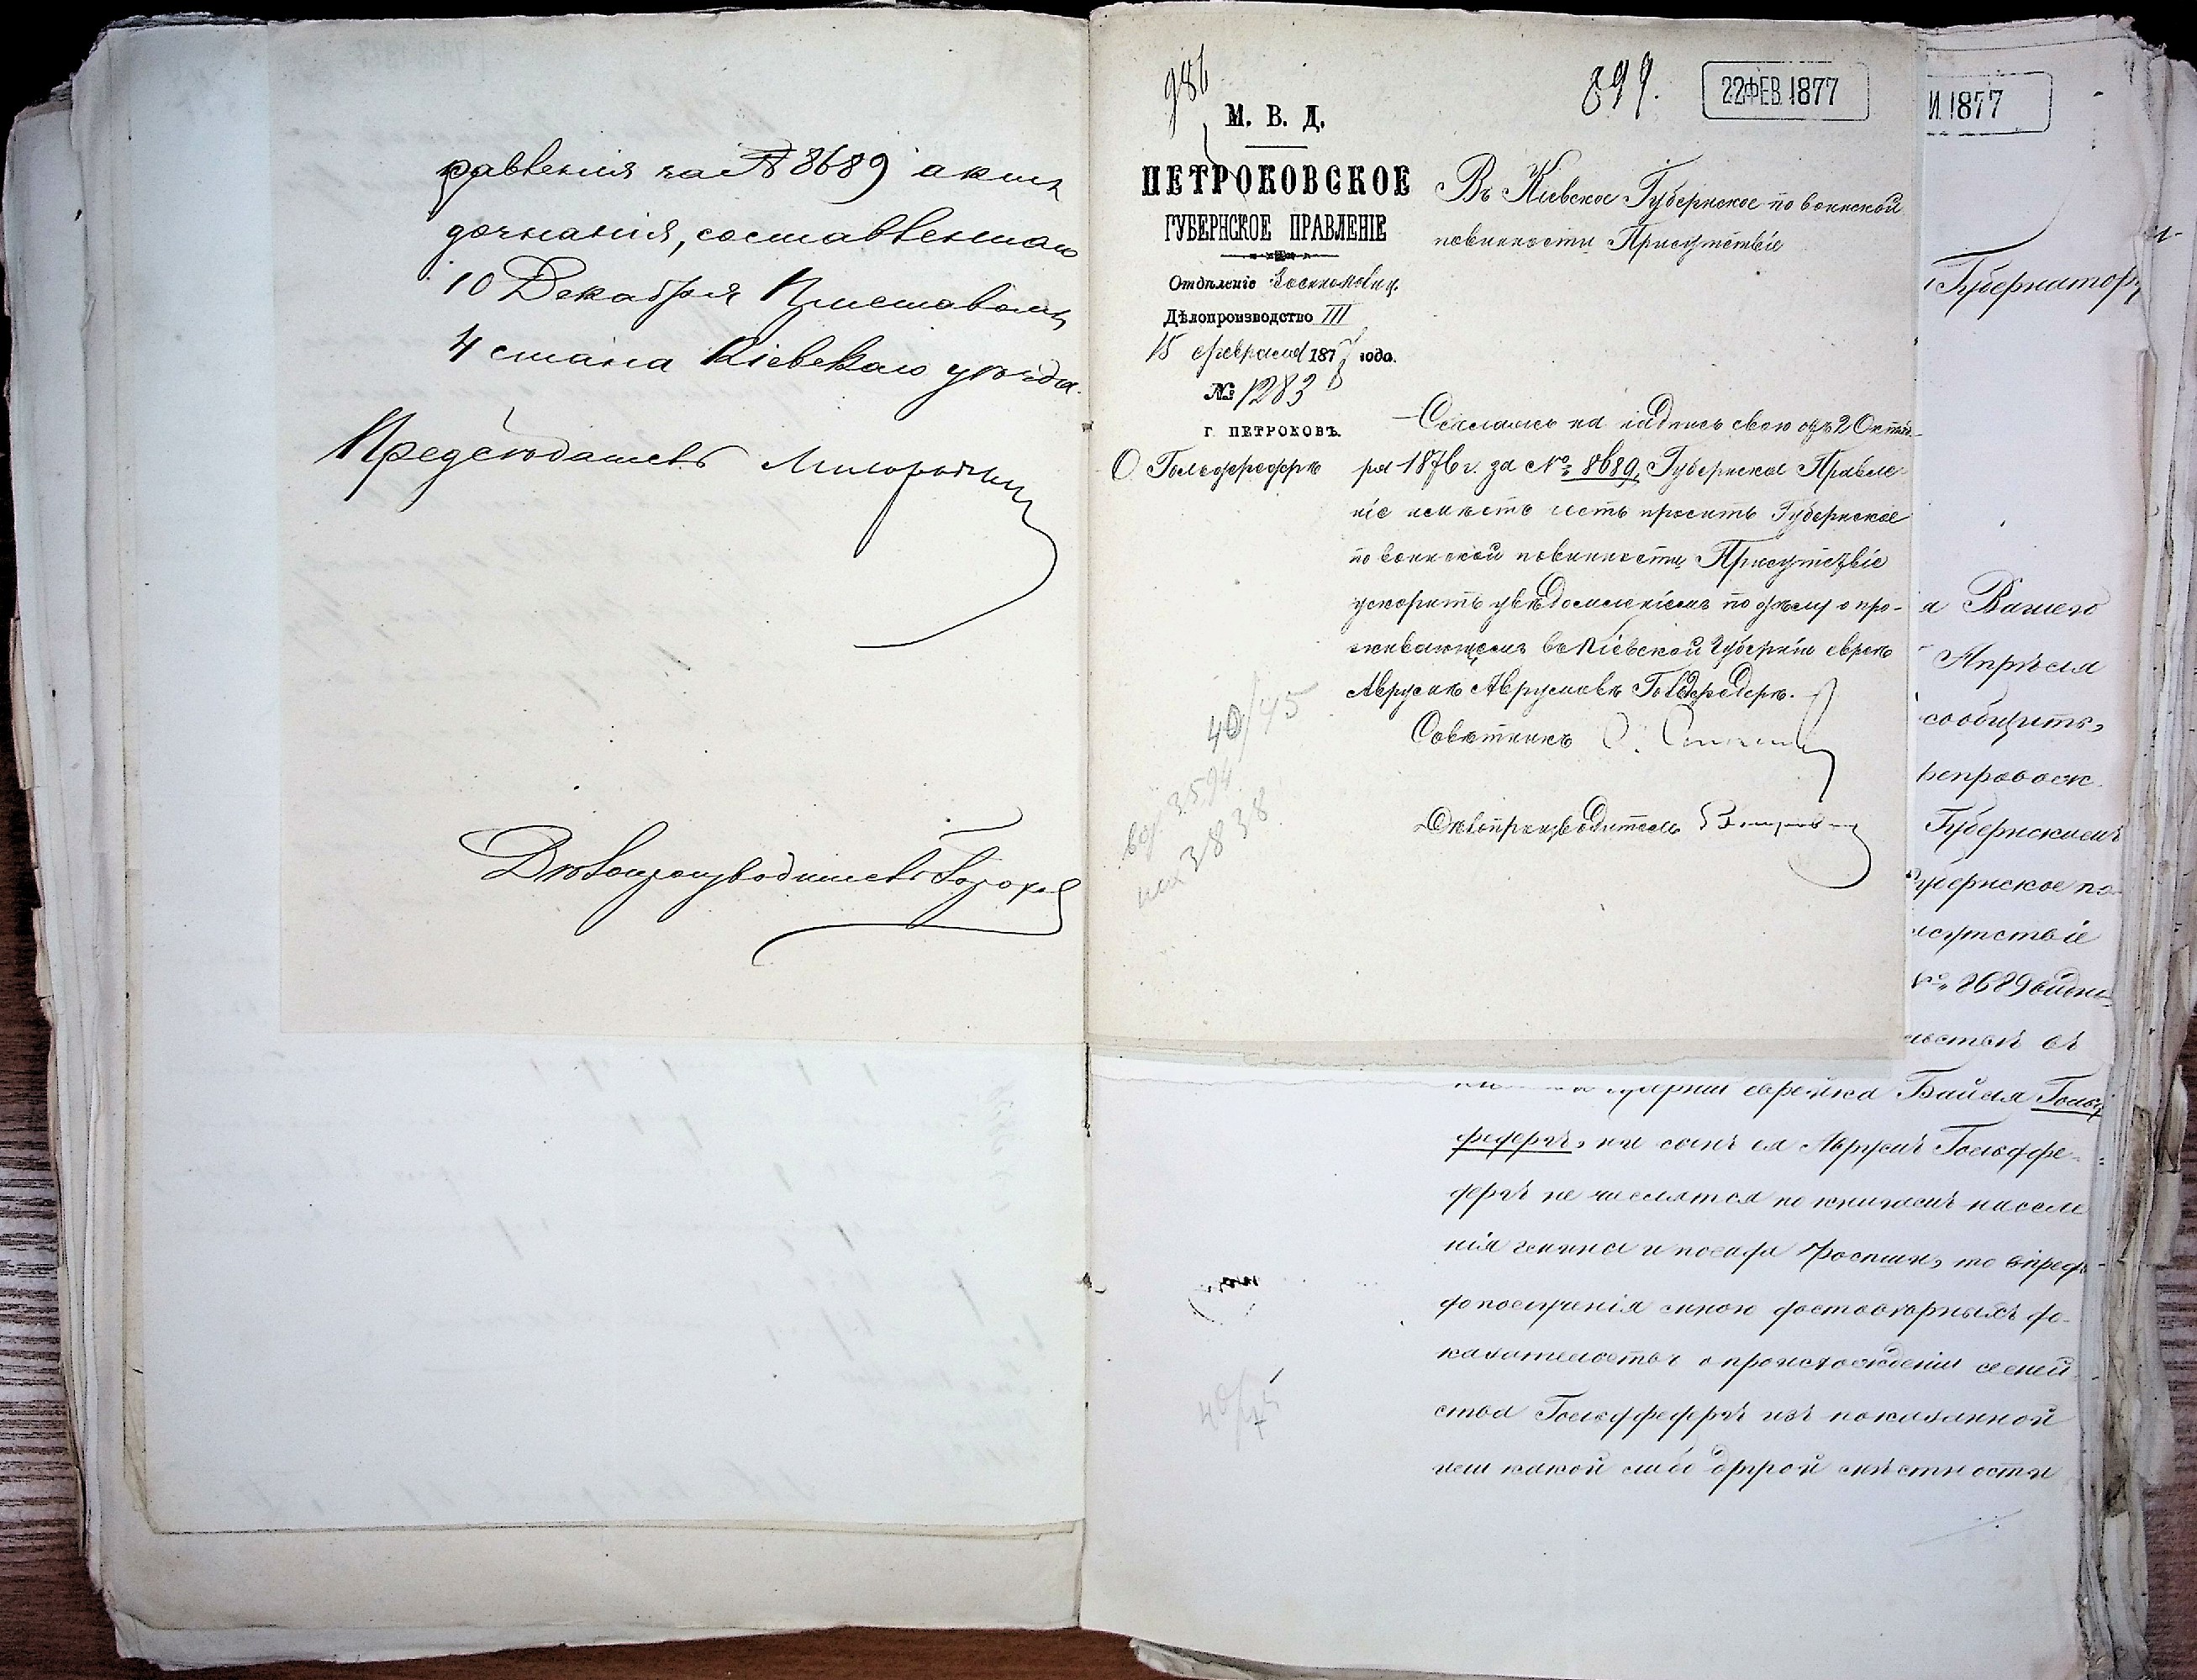 равленія за № 8689 актъ
дознанія, составленнаго
10 Декабря Приставомъ
4 стана Кіевскаго уѣзда.
Предсѣдатель
Дѣлопроизводитель
986
899.
22 ФЕВ. 1877
М. В. Д.
ПЕТРОКОВСКОЕ
ГУБЕРНСКОЕ ПРАВЛЕНІЕ
Отдѣленіе
Дѣлопроизводство III
15 февраля 1877 года.
№ 1283
Г. ПЕТРОКОВЪ.
О Гольдфедеръ
Въ Кіевское Губернское по воинской
повинности Присутствіе
Ссылаясь на надпись свою отъ 2 Октяб-
ря 1876 г. за № 8689, Губернское Правле-
ніе имѣетъ честь просить Губернское
по воинской повинности Присутствіе
ускорить увѣдомленіемъ по дѣлу о про-
живающемъ въ Кіевской Губерніи евреѣ
Аврумѣ Аврумовѣ
Совѣтникъ
Дѣлопроизводитель
40/45
вх. 3594
исх 3838
И 1877
Губернатору
а Вашего
Апрѣля
сообщить,
препровож
Губернскимъ
Губернское по
исутствіе
№ 8689
губерніи еврейка Байля Гольд
федеръ, ни сынъ ея Аврумъ Гольдфе-
деръ не числятся по книгамъ населе
нія гмины и посада то впредь
до полученія мною достовѣрныхъ до-
казательствъ о происхожденіи семей
ства Гольдфедеръ изъ показанной
или какой либо другой мѣстности
40/45